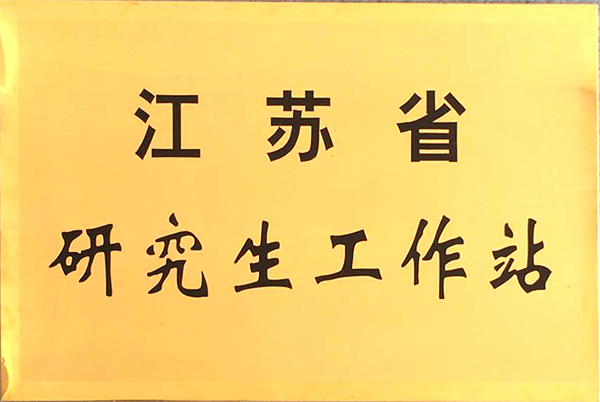 江苏省
研究生工作站